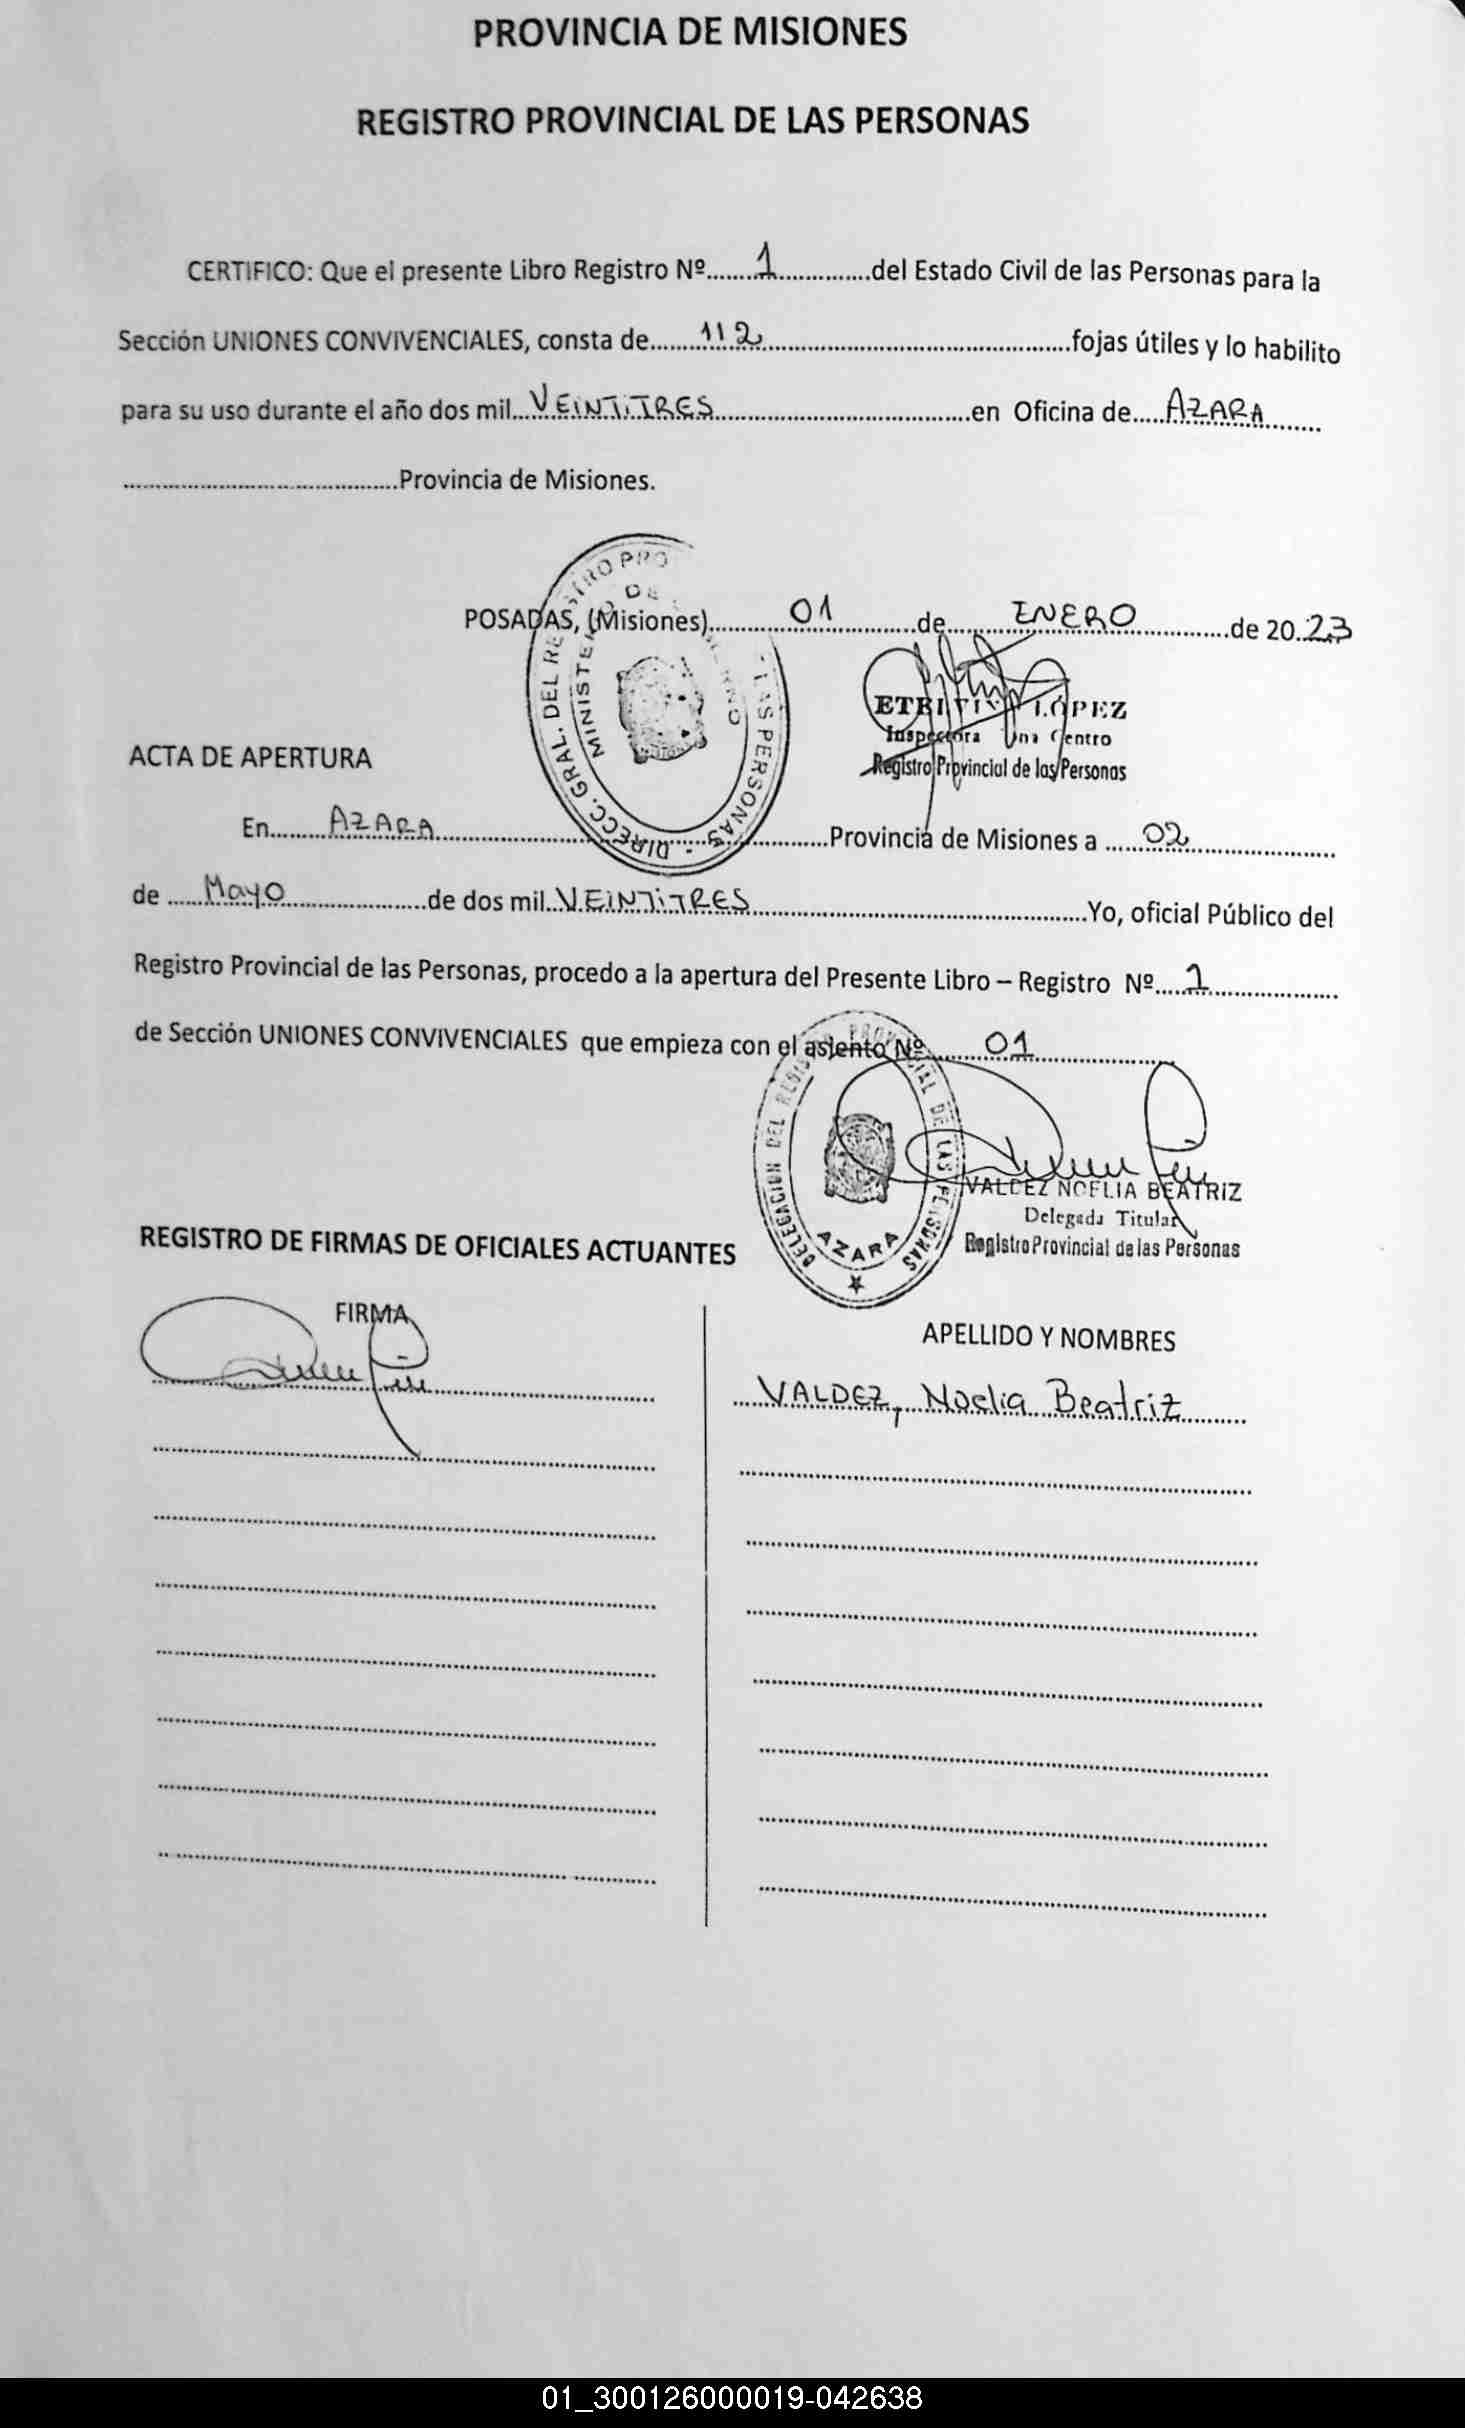 PROVINCIA DE MISIONES
REGISTRO PROVINCIAL DE LAS PERSONAS
CERTIFICO: Que el presente Libro Registro Nº........1..............del Estado Civil de las Personas para la
Sección UNIONES CONVIVENCIALES, consta de........112........fojas útiles y lo habilito
para su uso durante el año dos mil...VEINTITRES........en Oficina de.....AZARA........
........Provincia de Misiones.
POSADAS, (Misionес)........01........de........ENERO........de 20..23
ETELVINA LÓPEZ
Inspectora Zona Centro
Registro Provincial de las Personas
DIRECC. GRAL. DEL REGISTRO PRO LAS PERSONAS
MINISTERIO DE
ACTA DE APERTURA
En........AZARA........Provincia de Misiones a ......02........
de ......Mayo........de dos mil...VEINTITRES........Yo, oficial Público del
Registro Provincial de las Personas, procedo a la apertura del Presente Libro – Registro Nº.....1........
de Sección UNIONES CONVIVENCIALES que empieza con el asiento Nº........01........
DELEGACION DEL REGISTRO PROVINCIAL DE LAS PERSONAS
AZARA
VALDEZ NOELIA BEATRIZ
Delegada Titular
Registro Provincial de las Personas
REGISTRO DE FIRMAS DE OFICIALES ACTUANTES
FIRMA
APELLIDO Y NOMBRES
VALDEZ, Noelia Beatriz
01_300126000019-042638